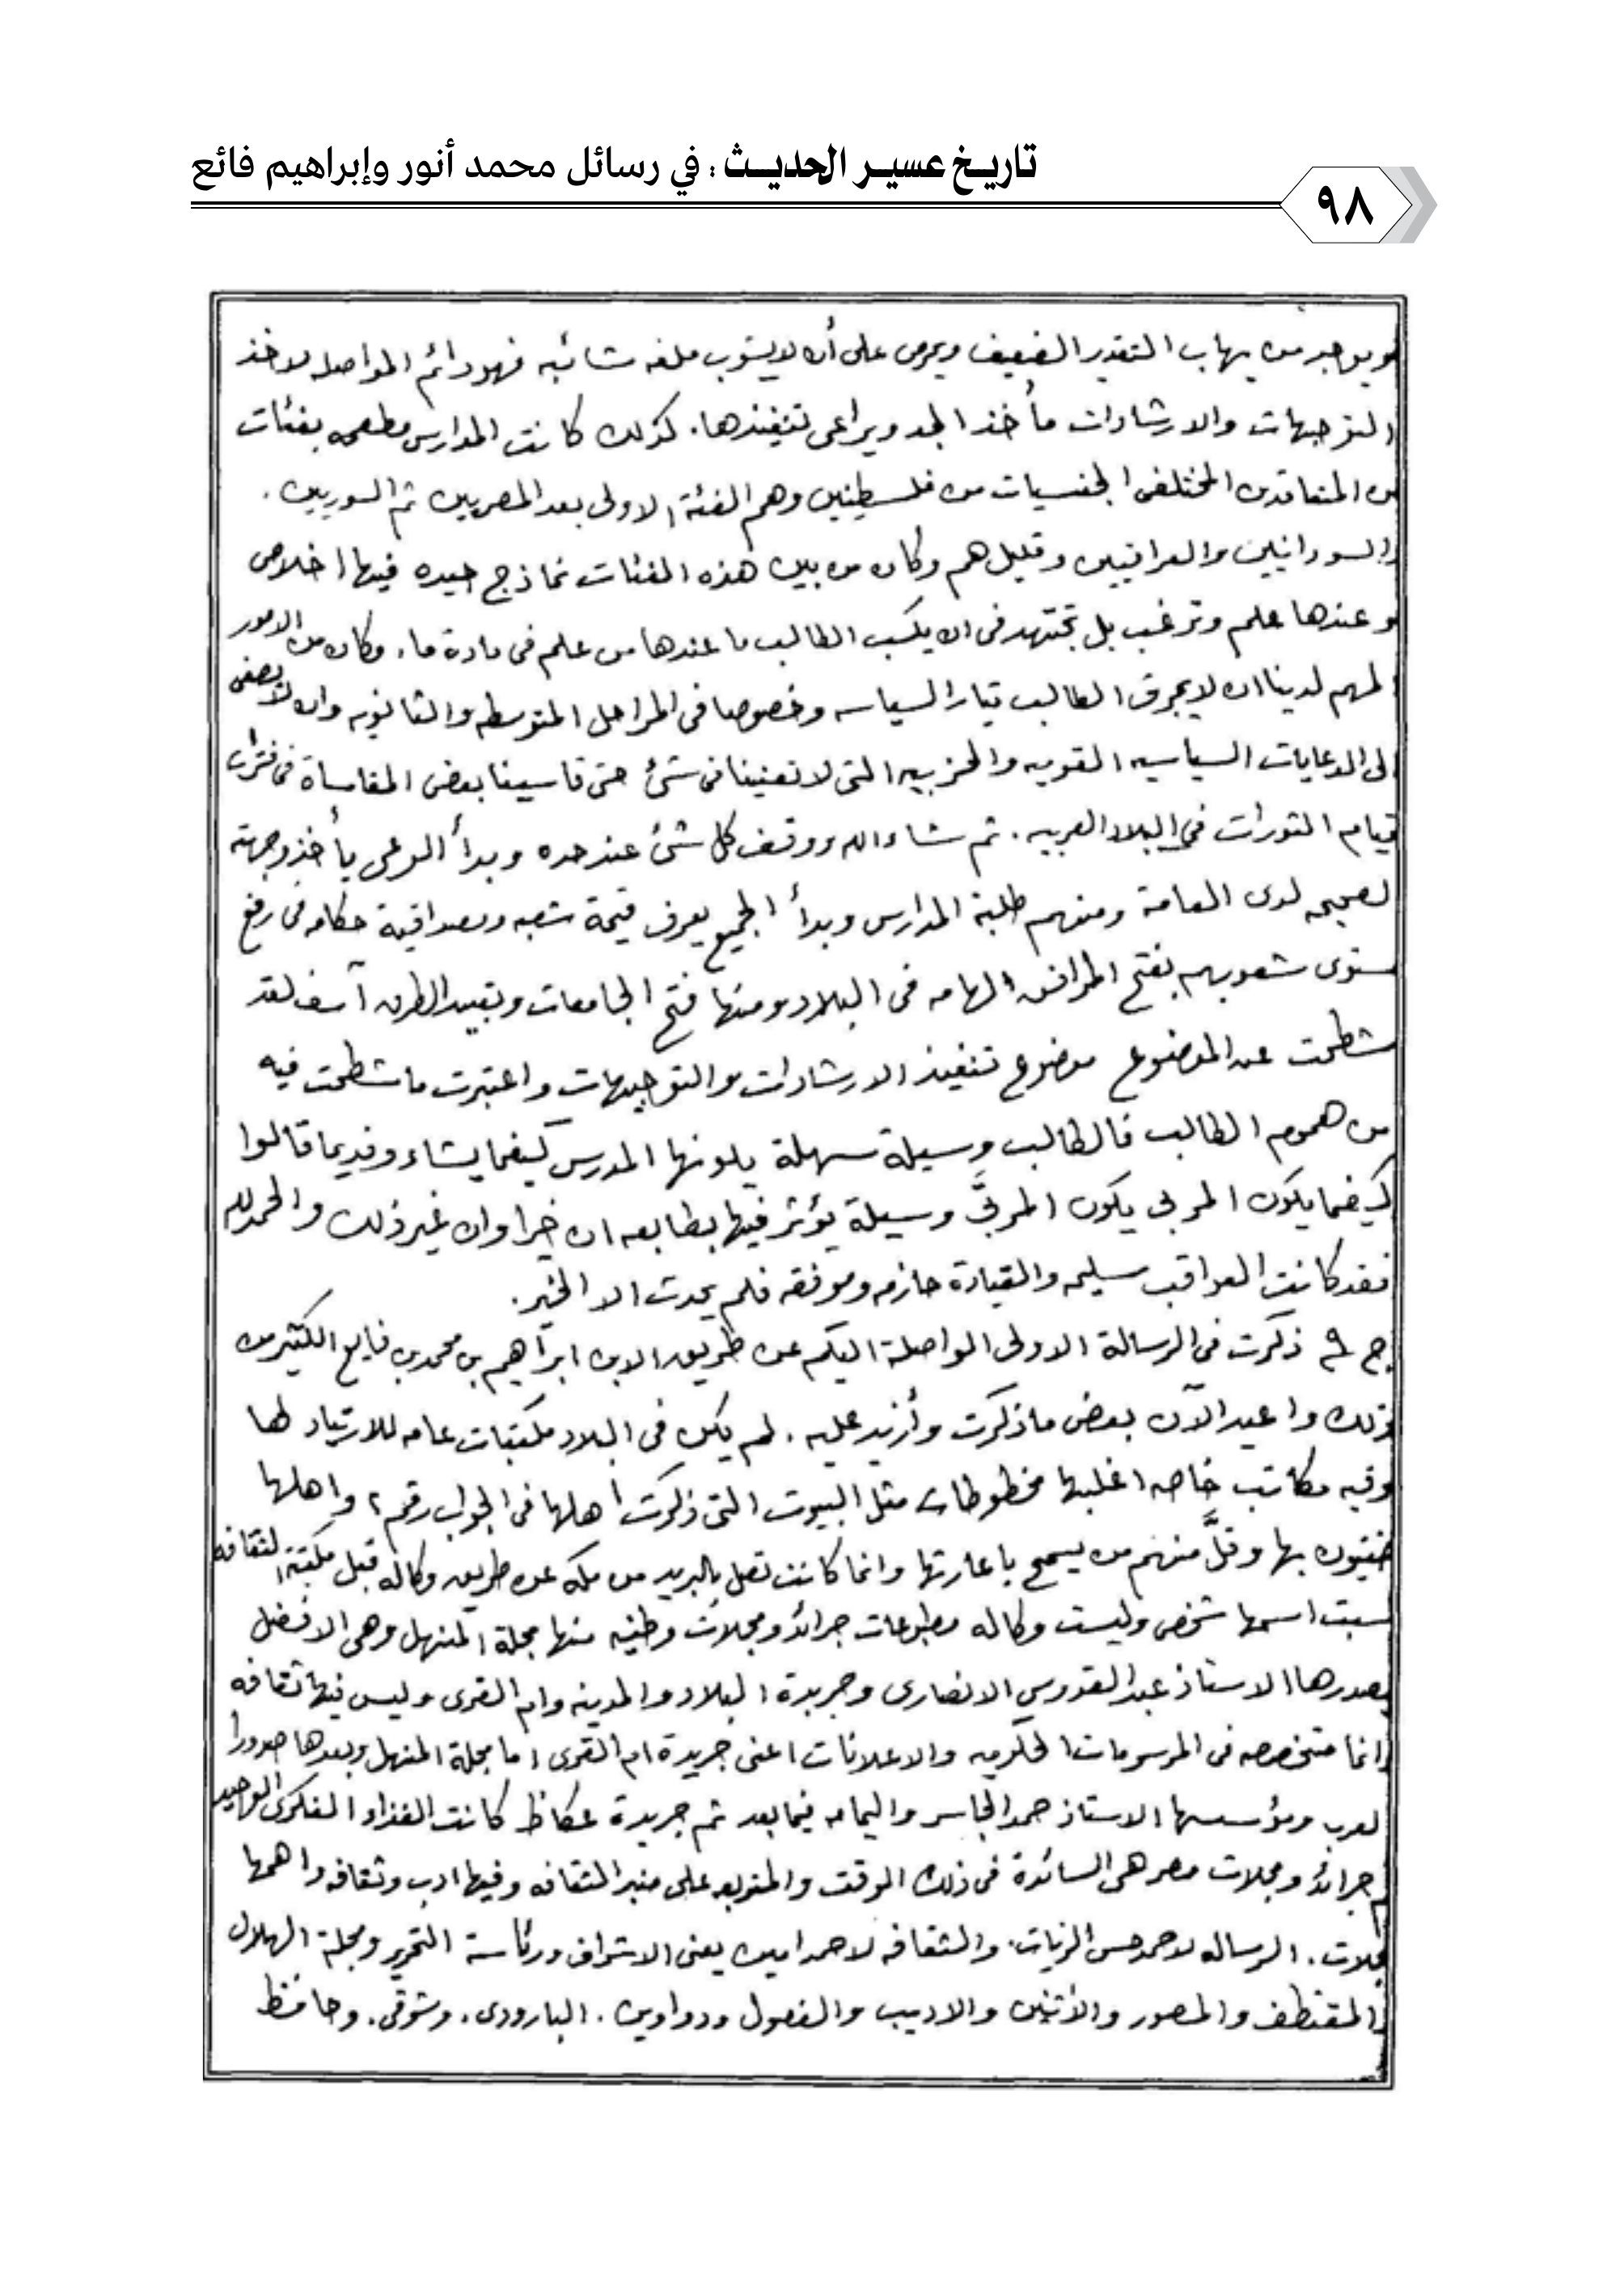 تاريخ عسير الحديث : في رسائل محمد أنور وإبراهيم فائع
٩٨
ويوجد من يهاب التقدير الضعيف ويحرص على أن لا يشوب ملفه شائبه فهو دائم المواصله لاخذ
التوجيهات والارشادات مأخذ الجد ويراعى تنفيذها. كذلك كانت المدارس مطعمه بفئات
من المتعاقدين المختلفى الجنسيات من فلسطينين وهم الفئة الاولى بعد المصريين ثم السوريين .
والسودانيين والعراقيين وقليل هم وكان من بين هذه الفئات نماذج جيده فيها اخلاص
وعندها علم وترغب بل تجتهد فى ان يكسب الطالب ما عندها من علم فى مادة ما. وكان من الامور
المهم لدينا ان لا يجرف الطالب تيار السياسه وخصوصا فى المراحل المتوسطه والثانويه وان لا يصغى
الى الدعايات السياسيه القوميه والحزبيه التى لا تعنينا فى شئ حتى قاسينا بعض المقاساة فى فترات
قيام الثورات في البلاد العربيه . ثم شاء الله ووقف كل شئ عند حده وبدأ الوعى يأخذ وجهته
لصحيحه لدى العامة ومنهم طلبة المدارس وبدأ الجميع يعرف قيمة شعبه ومصداقية حكامه فى رفع
ستوى شعوبهم بفتح المرافق الهامه فى البلاد ومنها فتح الجامعات وتعبيد الطرق آسف لقد
شطحت عن الموضوع موضوع تنفيذ الارشادات والتوجيهات واعتبرت ما شطحت فيه
من هموم الطالب فالطالب وسيلة سهلة يلونها المدرس كيفما يشاء وقديما قالوا
كيفما يكون المربي يكون المربَّى وسيلة يؤثر فيها بطابعه ان خيرا وان غير ذلك والحمد لله
فقد كانت العواقب سليمه والقيادة حازمه وموفقه فلم يحدث الا الخير.
ج ٩ ذكرت فى الرسالة الاولى الواصلة اليكم عن طريق الابن ابراهيم بن محمد بن فايع الكثير من
ذلك واعيد الآن بعض ما ذكرت وأزيد عليه . لم يكن فى البلاد مكتبات عامه للارتياد لها
وفيه مكاتب خاصه اغلبها مخطوطات مثل البيوت التى ذكرت اهلها فى الجواب رقم ٢ واهلها
ضنيون بها وقلَّ منهم من يسمح باعارتها وانما كانت تصل بالبريد من مكه عن طريق وكاله قبل مكتبة الثقافه
اسمها شخص وليست وكاله مطبوعات جرائد ومجلات وطنيه منها مجلة المنهل وهى الافضل
يصدرها الاستاذ عبد القدوس الانصارى وجريدة البلاد والمدينه وام القرى وليس فيها ثقافه
وانما متخصصه فى المرسومات الحكوميه والاعلانات اعنى جريدة ام القرى اما مجلة المنهل وبعدها صدورا
لعرب ومؤسسها الاستاذ حمد الجاسر واليمامه فيما بعد ثم جريدة عكاظ كانت الغذاء الفكرى الوحيد
ثم جرائد ومجلات مصر هى السائدة فى ذلك الوقت والمتربعه على منبر الثقافه وفيها ادب وثقافه واهمها
مجلات . الرساله لاحمد حسن الزيات . والثقافه لاحمد امين يعنى الاشراف ورئاسة التحرير ومجلة الهلال
والمقتطف والمصور والأثنين والاديب والفصول ودواوين . البارودى . وشوقى . وحافظ